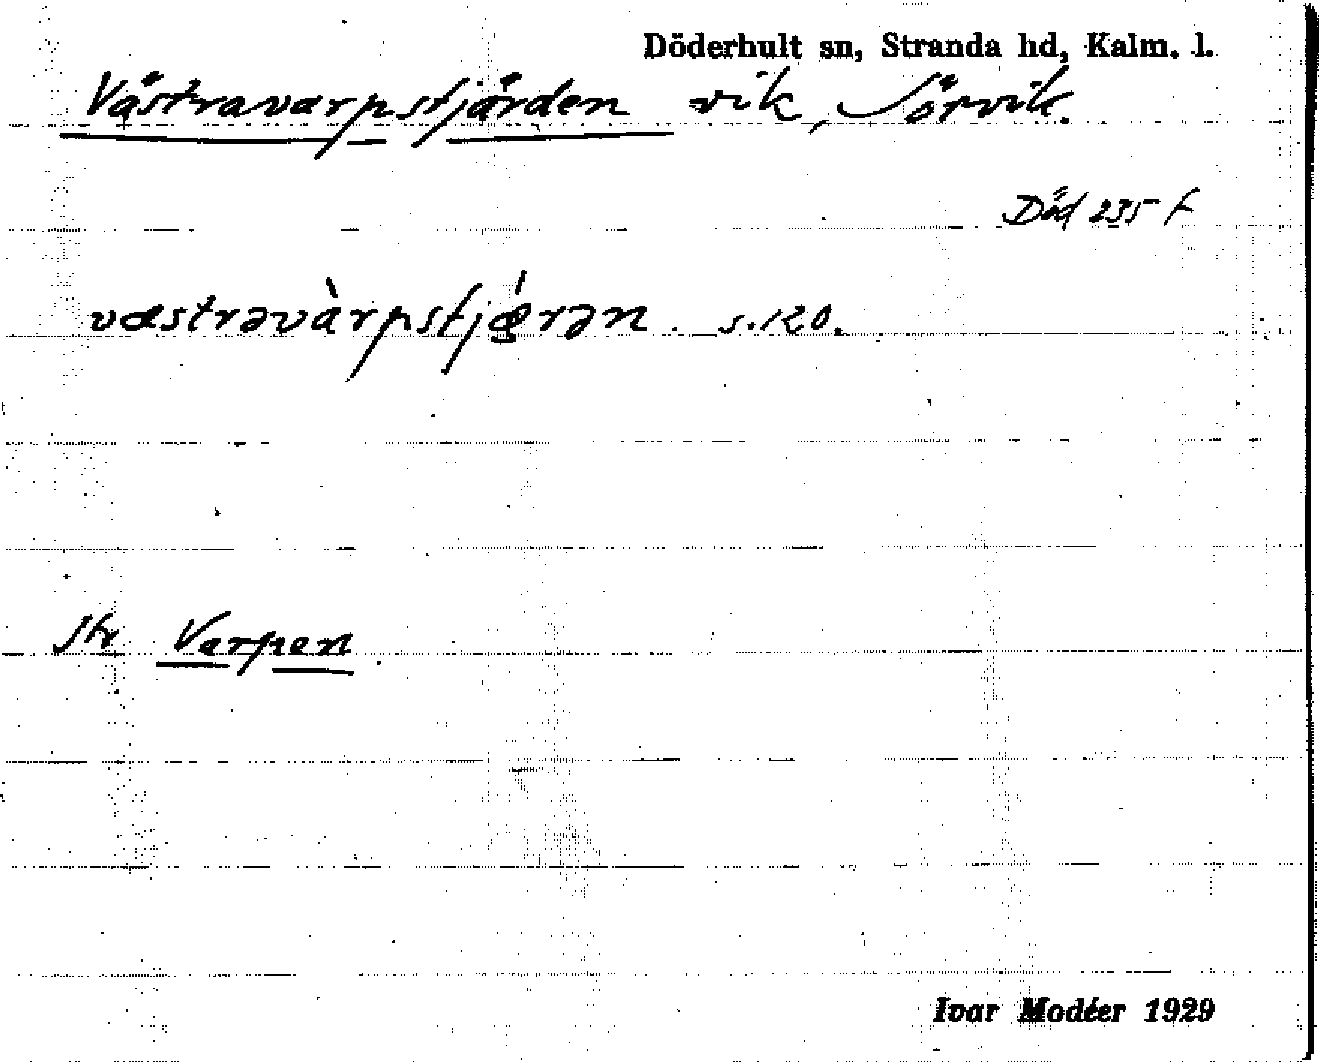 Döderhult sn, Stranda hd, Kalm. l.
Västravarpsfjärden vik, Sörvik.
Död 235 f
västrəvàrpsfjǽrən s. 120.
Jfr Varpen
Ivar Modéer 1929